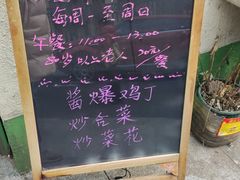 每周一至周日
午餐：11:00-13:00
岁以上老人 20元/餐
酱爆鸡丁
炒合菜
炒菜花